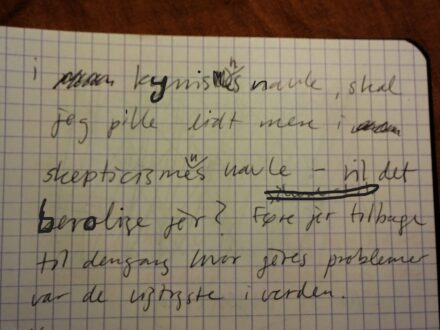 i kynismens navle, skal
jeg pille lidt mere i
skepticismens navle – vil det
berolige jer? Føre jer tilbage
til dengang hvor jeres problemer
var de vigtigste i verden.